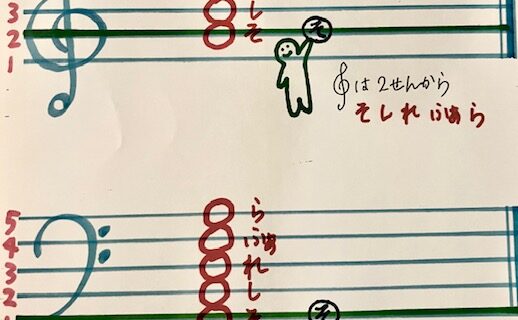 3 し
2 そ そ
1
𝄞は2せんから
そしれふぁら
5 ら
4 ふぁ
3 れ
2 し
そ そ